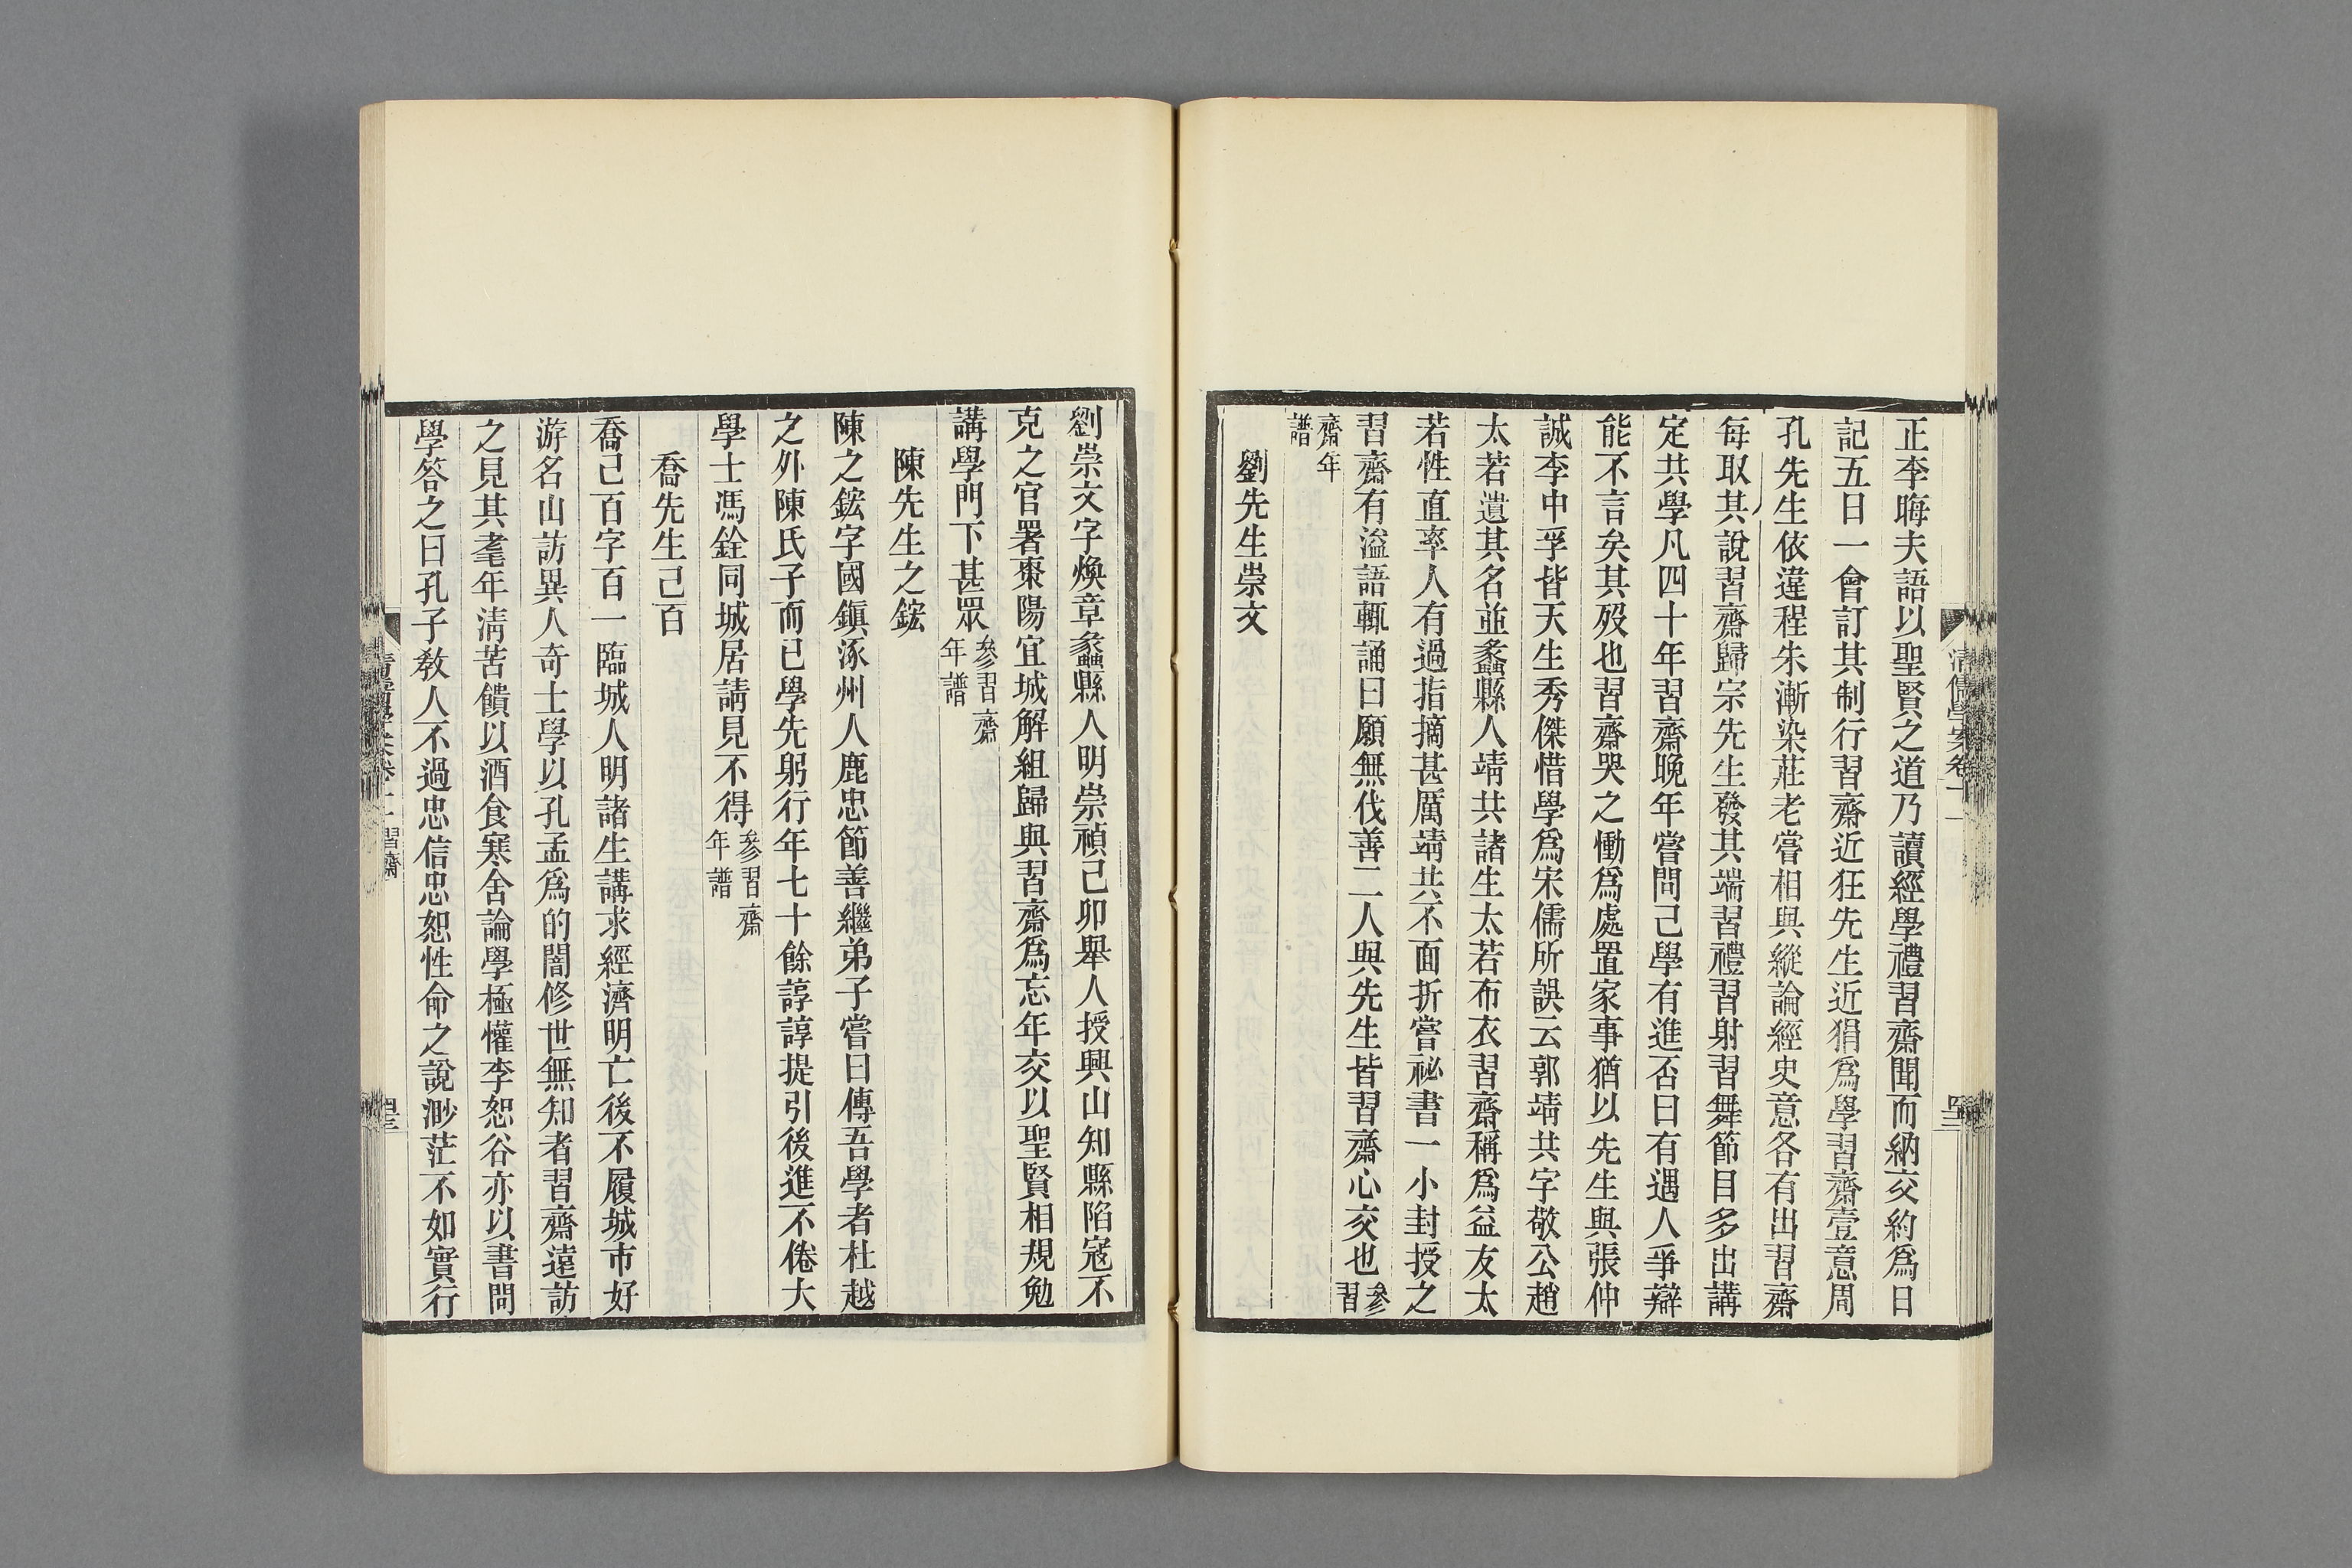 正李晦夫語以聖賢之道乃讀經學禮習齋聞而納交約爲日
記五日一會訂其制行習齋近狂先生近狷爲學習齋壹意周
孔先生依違程朱漸染莊老嘗相與縱論經史意各有出習齋
每取其說習齋歸宗先生發其端習禮習射習舞節目多出講
定共學凡四十年習齋晚年嘗問己學有進否曰有遇人爭辯
能不言矣其歿也習齋哭之慟爲處置家事猶以先生與張仲
誠李中孚皆天生秀傑惜學爲宋儒所誤云郭靖共字敬公趙
太若遺其名並蠡縣人靖共諸生太若布衣習齋稱爲益友太
若性直率人有過指摘甚厲靖共不面折嘗祕書一小封授之
習齋有溢語輒誦曰願無伐善二人與先生皆習齋心交也參習
齋年譜
劉先生崇文
清儒學案卷十一
劉崇文字煥章蠡縣人明崇禎己卯舉人授興山知縣陷寇不
克之官署棗陽宜城解組歸與習齋爲忘年交以聖賢相規勉
講學門下甚眾參習齋年譜
陳先生之鋐
陳之鋐字國鎮涿州人鹿忠節善繼弟子嘗曰傳吾學者杜越
之外陳氏子而已學先躬行年七十餘諄諄提引後進不倦大
學士馮銓同城居請見不得參習齋年譜
喬先生己百
喬己百字百一臨城人明諸生講求經濟明亡後不履城市好
游名山訪異人奇士學以孔孟爲的闇修世無知者習齋遠訪
之見其耄年清苦饋以酒食寒舍論學極懽李恕谷亦以書問
學答之曰孔子敎人不過忠信忠恕性命之說渺茫不如實行
習齋